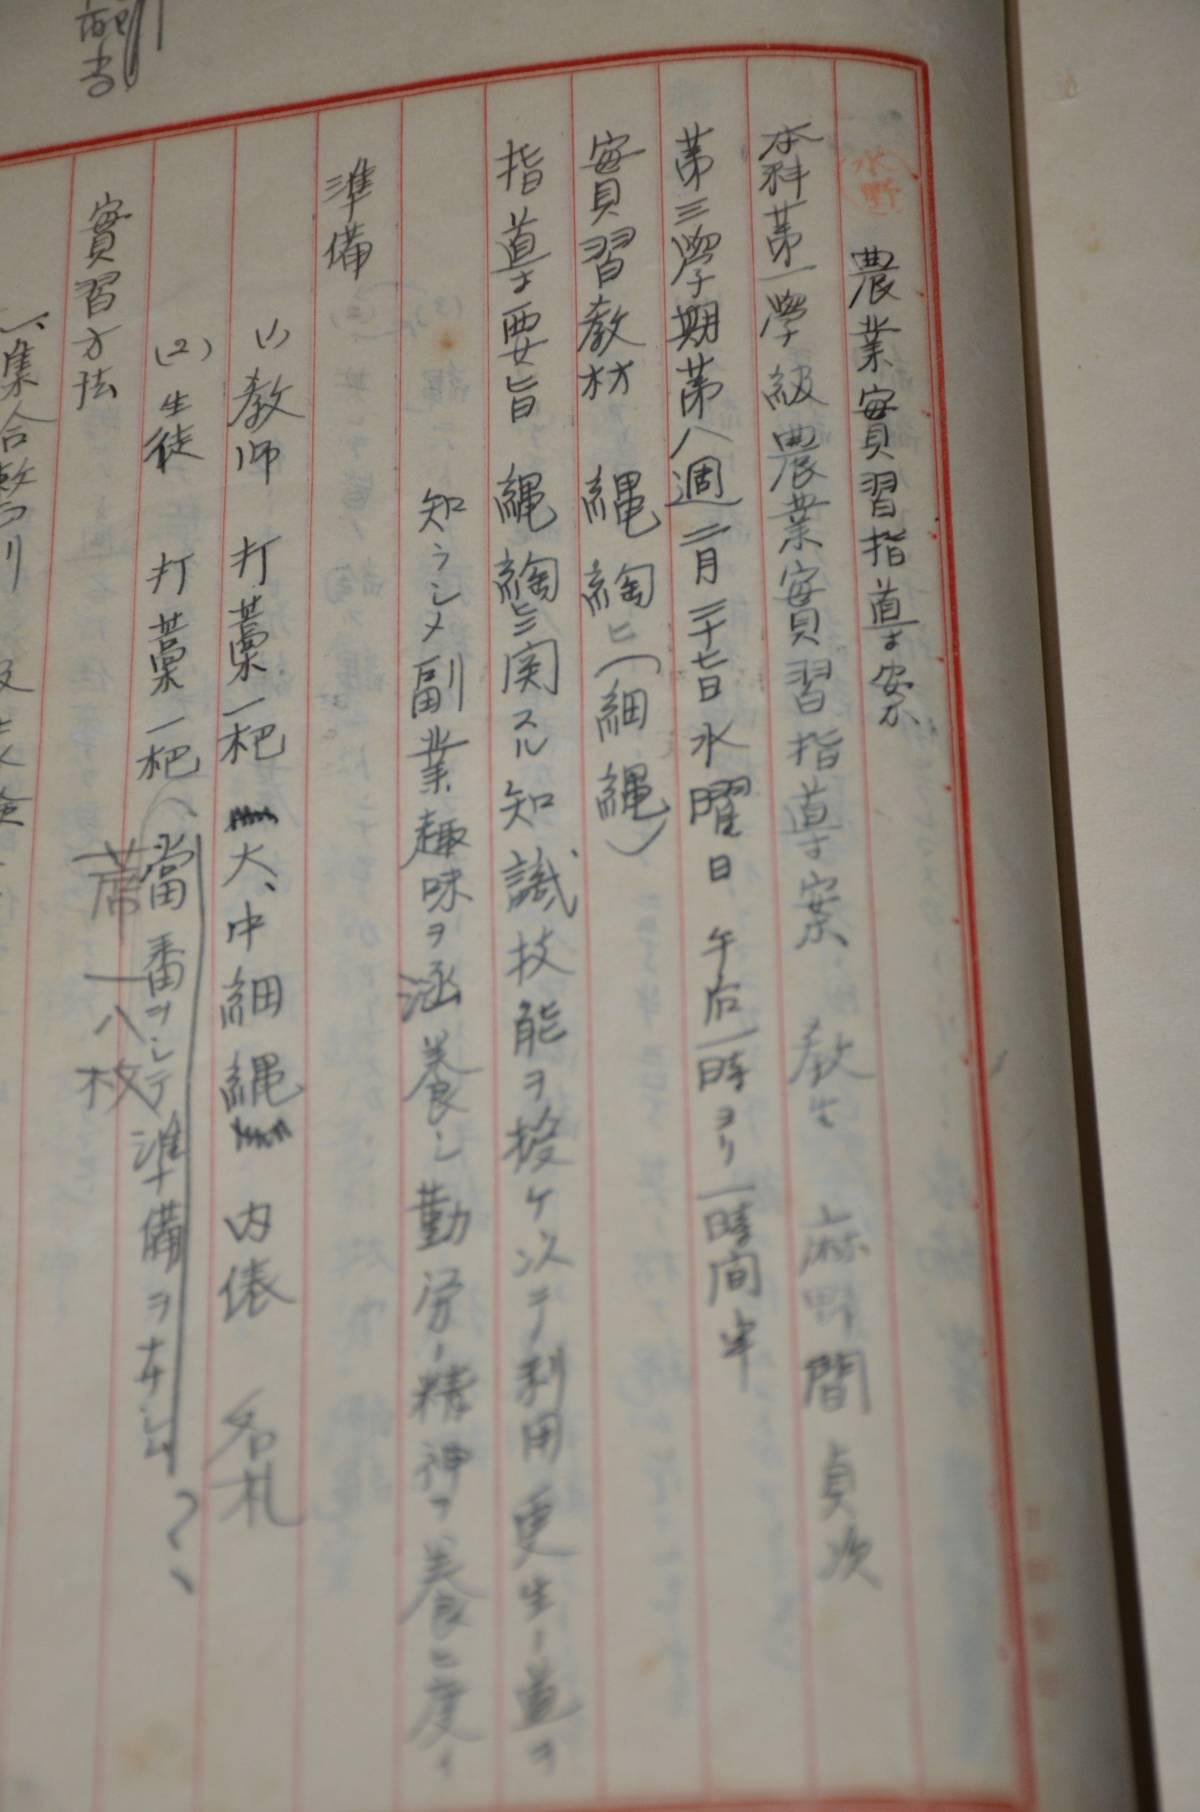 水野
農業實習指導案
本科第一學級農業實習指導案 教生 麻野間 貞次
第三學期第八週 二月二十七日水曜日 午后一時ヨリ一時間半
實習教材 縄綯ヒ(細縄)
指導要旨 縄綯ヒニ関スル知識技能ヲ授ケ次ニテ利用更生ノ道ヲ
知ラシメ副業趣味ヲ涵養シ勤労ノ精神ヲ養ヒ度イ
準備
(1) 教師 打藁一把 大、中細縄 内俵 名札
(2) 生徒 打藁一把 當番ヲシテ準備ヲナシム?
蓆 一八枚
實習方法
一、集合